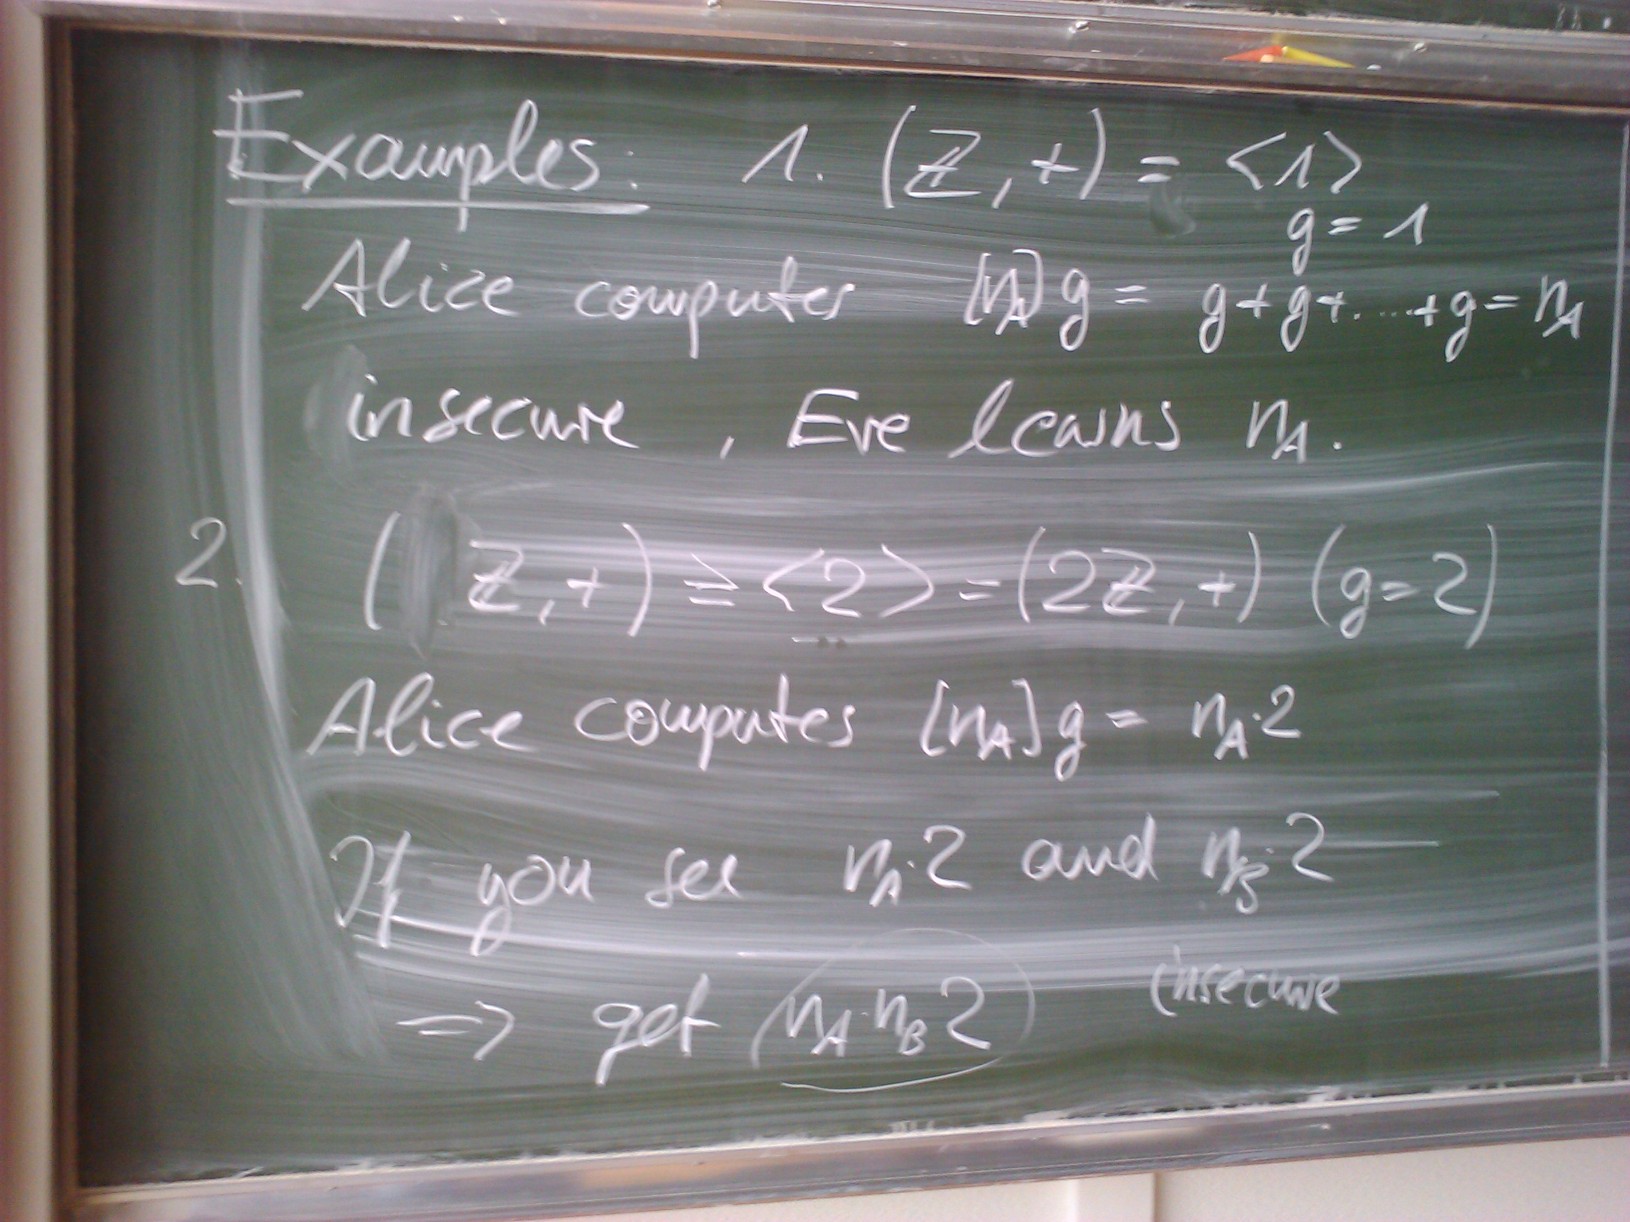 Examples: 1. (ℤ,+) = <1>
g = 1
Alice computes [n_A]g = g+g+....+g = n_A
insecure, Eve learns n_A.
2. (ℤ,+) ≥ <2> = (2ℤ,+) (g=2)
Alice computes [n_A]g = n_A·2
If you see n_A·2 and n_B·2
=> get n_A·n_B 2 insecure